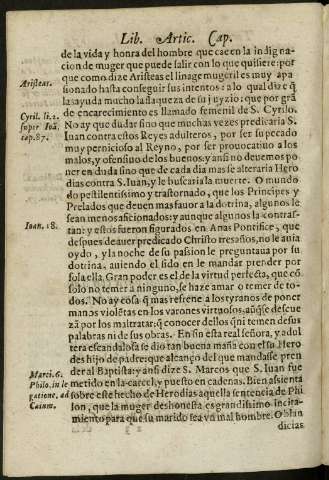 Lib. Artic. Cap.
de la vida y honra del hombre que cae en la indigna
cion de muger que puede salir con lo que quisiere: por
que como dize Aristeas el linage mugeril es muy apa
Aristeas.
sionado hasta conseguir sus intentos: a lo qual dize q̃
las ayuda mucho la flaqueza de su juyzio: que por grã
de encarecimiento es llamado femenil de S. Cyrilo.
Cyril. li. 2.
super Ioã.
cap. 87.
No ay que dudar sino que muchas vezes predicaria S.
Iuan contra estos Reyes adulteros, por ser su pecado
muy pernicioso al Reyno, por ser prouocatiuo a los
malos, y ofensiuo de los buenos: y ansi no deuemos po
ner en duda sino que de cada dia mas se alteraria Hero
dias contra S. Iuan, y le buscaria la muerte. O mundo
do pestilentissimo y trastornado, que los Principes y
Prelados que deuen mas fauor a la dotrina, algunos le
sean menos aficionados: y aunque algunos la contras-
Ioan. 18.
tan: y estos fueron figurados en Anas Pontifice, que
despues de auer predicado Christo tres años, no le auia
oydo, y la noche de su passion le preguntaua por su
dotrina, auiendo el sido en le mandar prender por
sola ella. Gran poder es el de la virtud perfecta, que cõ
solo no temer a ninguno, se haze amar o temer de to-
dos. No ay cosa q̃ mas refrene a los tyranos de poner
manos violẽtas en los varones virtuosos, aũq̃ se descue
zã por los maltratar: q̃ conocer dellos q̃ ni temen de sus
palabras ni de sus obras. En fin esta real señora, y adul
tera escandalosa se dio tan buena maña con el su Hero
des hijo de padre: que alcanço del que mandasse pren
der al Baptista: y ansi dize S. Marcos que S. Iuan fue
Marci. 6.
Philo. in le
gatione. ad
Caium.
metido en la carcel, y puesto en cadenas. Bien assienta
sobre este hecho de Herodias aquella sentencia de Phi
lon, que la muger deshonesta es grandissimo incita-
miento para que su marido sea vn mal hombre. O blan
dicias